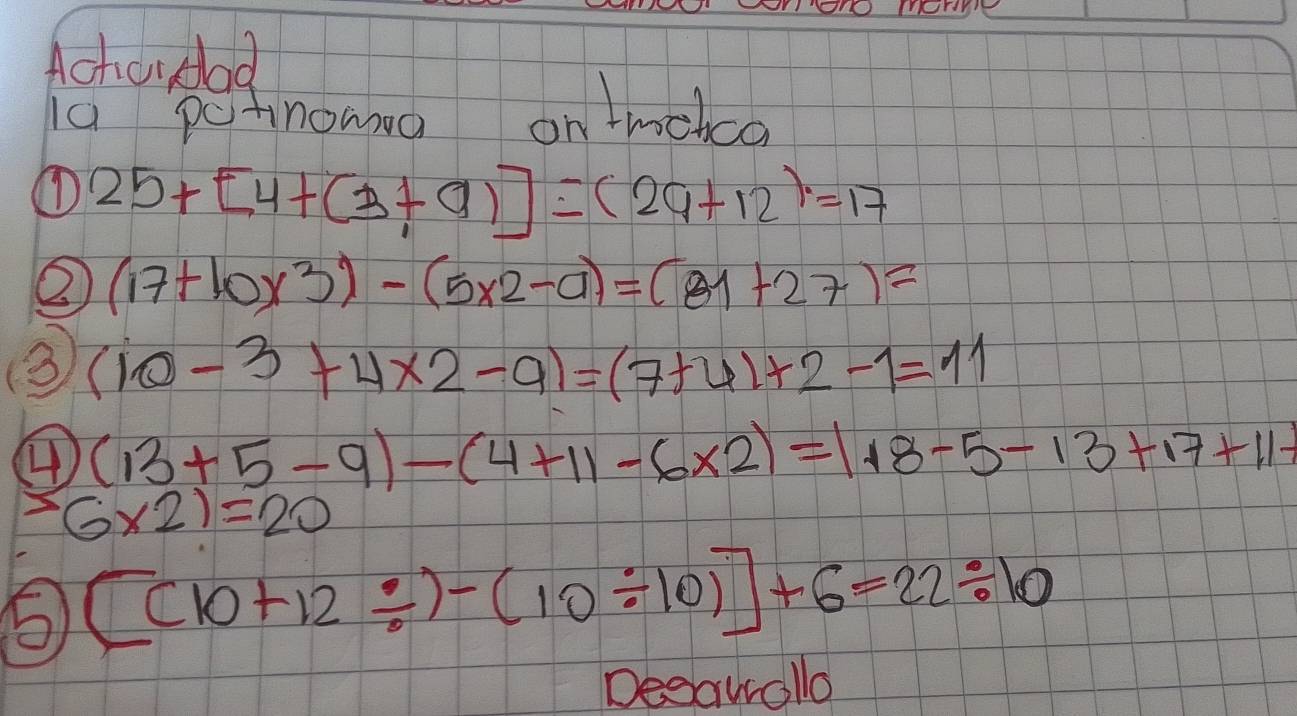 Actividad
la patinomia aritmetica
① 25+[4+(3+9)]=(29+12)=17
② (17+10x3)-(5x2-9)=(81+27)=
③ (10-3+4x2-9)=(7+4)+2-1=11
④ (13+5-9)-(4+11-6x2)=(18-5-13+17+11+
6x2)=20
⑤ [(10+12÷)-(10÷10)]+6=22÷10
Desarrollo